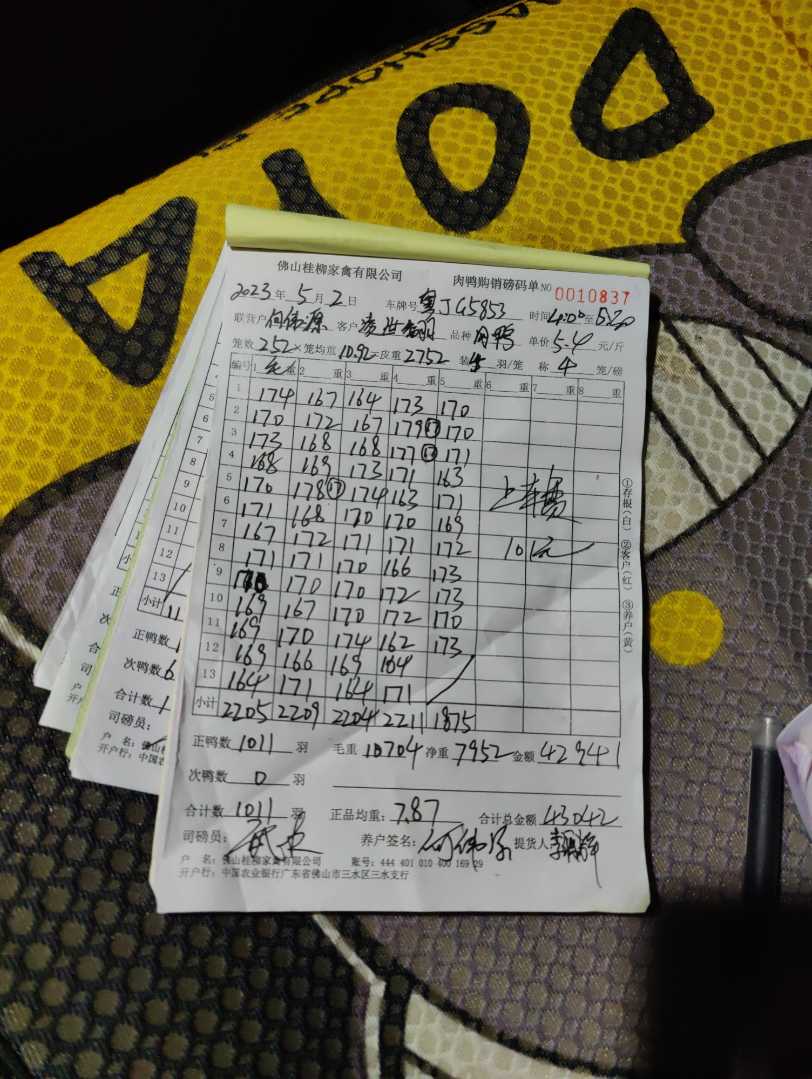 佛山桂柳家禽有限公司 肉鸭购销磅码单 NO 0010837
2023年5月2日 车牌号粤JG5853 时间4:00至5:20
联货户何伟源 客户 品种肉鸭 单价5.4元/斤
笼数252×笼均重10.92=皮重2752 装 羽/笼 称4笼/磅
编号 1毛重 2重 3重 4重 5重 6重 7重 8重
1 174 167 164 173 170
2 170 172 167 179⑰ 170
3 173 168 168 177 171
4 168 169 173 171 163
5 170 178⑰ 174 163 171 上车费
6 171 168 170 170 169
7 167 172 171 171 172 101元
8 171 171 170 166 173
9 170 170 172 173
10 169 167 170 172 170
11 169 170 174 162 173
12 169 166 169 164
13 164 171 164 171
小计 2205 2209 2204 2211 1875
正鸭数1011羽 毛重10704 净重7952 金额42941
次鸭数0羽
合计数1011羽 正品均重:7.87 合计总金额43042
司磅员: 养户签名:何伟源 提货人
户 名:佛山桂柳家禽有限公司 账号:444 401 010 400 169 29
开户行:中国农业银行广东省佛山市三水区三水支行
①存根(白) ②客户(红) ③养户(黄)
10
11
12
13
小计 11
正鸭数
次鸭数 6
合计数 1
司磅员: